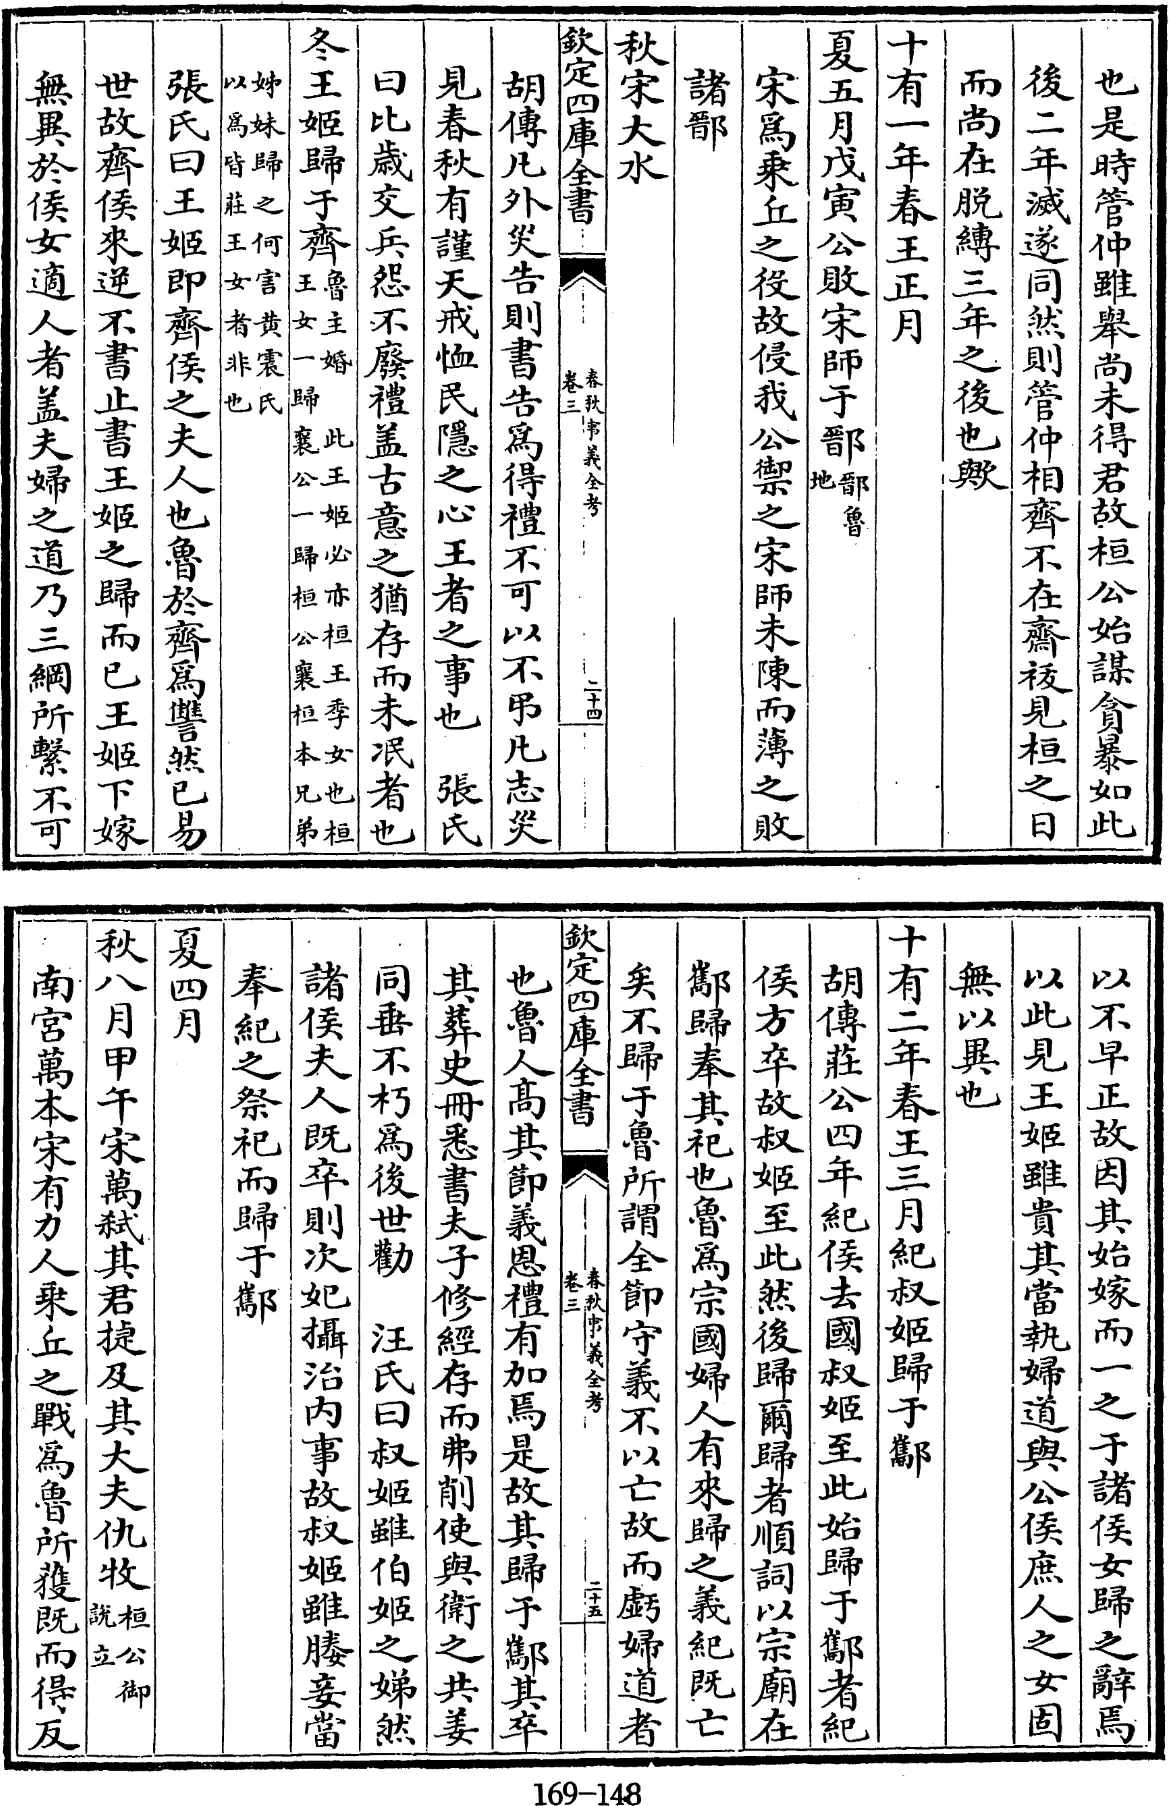 也是時管仲雖舉尚未得君故桓公始謀貪暴如此
後二年滅遂同然則管仲相齊不在齋祓見桓之日
而尚在脱縛三年之後也歟
十有一年春王正月
夏五月戊寅公敗宋師于鄑鄑魯地
宋為乗丘之役故侵我公禦之宋師未陳而薄之敗
諸鄑
秋宋大水
欽定四庫全書
春秋事義全考
卷三
二十四
胡傳凡外災告則書告爲得禮不可以不弔凡志災
見春秋有謹天戒恤民隱之心王者之事也 張氏
曰比歲交兵怨不廢禮盖古意之猶存而未泯者也
冬王姬歸于齊魯主婚 此王姬必亦桓王季女也桓王女一歸襄公一歸桓公襄桓本兄弟
姊妹歸之何害黄震氏以為皆莊王女者非也
張氏曰王姬即齊侯之夫人也魯於齊爲讐然已易
世故齊侯來逆不書止書王姬之歸而已王姬下嫁
無異於侯女適人者盖夫婦之道乃三綱所繫不可
以不早正故因其始嫁而一之于諸侯女歸之辭焉
以此見王姬雖貴其當執婦道與公侯庶人之女固
無以異也
十有二年春王三月紀叔姬歸于酅
胡傳莊公四年紀侯去國叔姬至此始歸于酅者紀
侯方卒故叔姬至此然後歸爾歸者順詞以宗廟在
酅歸奉其祀也魯爲宗國婦人有來歸之義紀既亡
矣不歸于魯所謂全節守義不以亡故而虧婦道者
欽定四庫全書
春秋事義全考
卷三
二十五
也魯人髙其節義恩禮有加焉是故其歸于酅其卒
其葬史冊悉書太子修經存而弗削使與衛之共姜
同垂不朽爲後世勸 汪氏曰叔姬雖伯姬之娣然
諸侯夫人既卒則次妃攝治内事故叔姬雖媵妾當
奉紀之祭祀而歸于酅
夏四月
秋八月甲午宋萬弒其君捷及其大夫仇牧桓公御說立
南宫萬本宋有力人乗丘之戰爲魯所獲既而得反
169-148